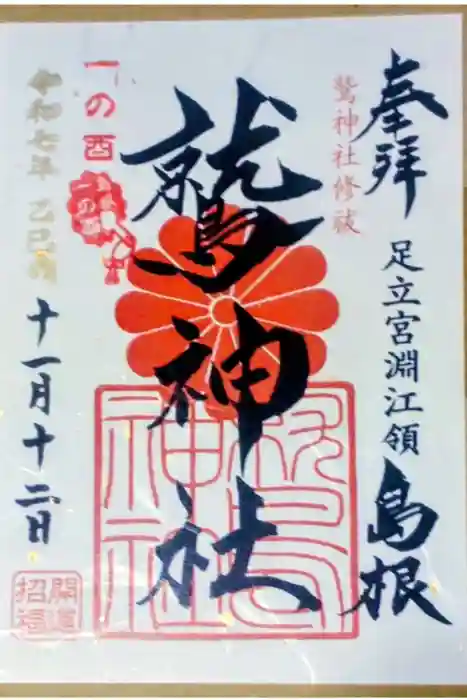 奉拝
足立宮淵江領
島根
鷲神社修祓
鷲神社
一の酉
一の酉
令和七年 乙巳歳
十一月十二日
開運
招福